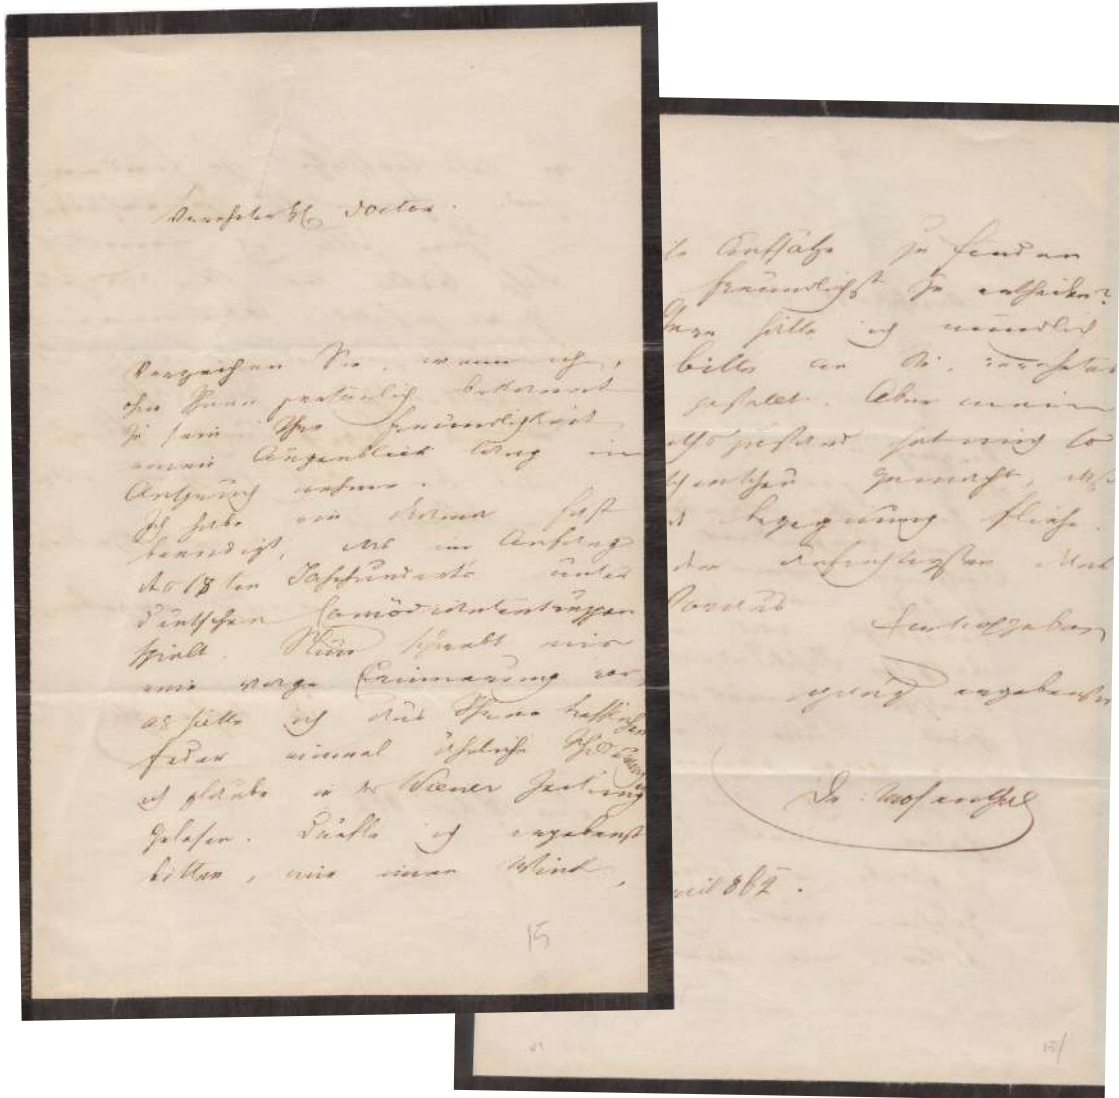 Verehrter H. Doctor.
Verzeihen Sie, wenn ich,
ohne Ihnen persönlich bekannt
zu sein Ihre Freundlichkeit
einen Augenblick lang in
Anspruch nehme.
Ich habe ein Drama fast
beendigt, das im Anfang
des 18ten Jahrhunderts unter
deutschen Comödiantentruppen
spielt. Nun schwebt mir
eine vage Erinnerung vor,
als hätte ich aus Ihrer
Feder einmal ähnliche
ich glaube in der Wiener Zeitung
gelesen. Dürfte ich ergebenst
bitten, mir einen Wink,
Aufsätze zu finden
freundlichst zu ertheilen?
hätte ich mündlich
bitte an Sie, verehrter
gestellt. Aber mein
hat mich so
gemacht, daß
Begegnung fliehe.
der aufrichtigsten
Hochachtung
ergebenst
Dr: Mosenthal
862.
15
15/